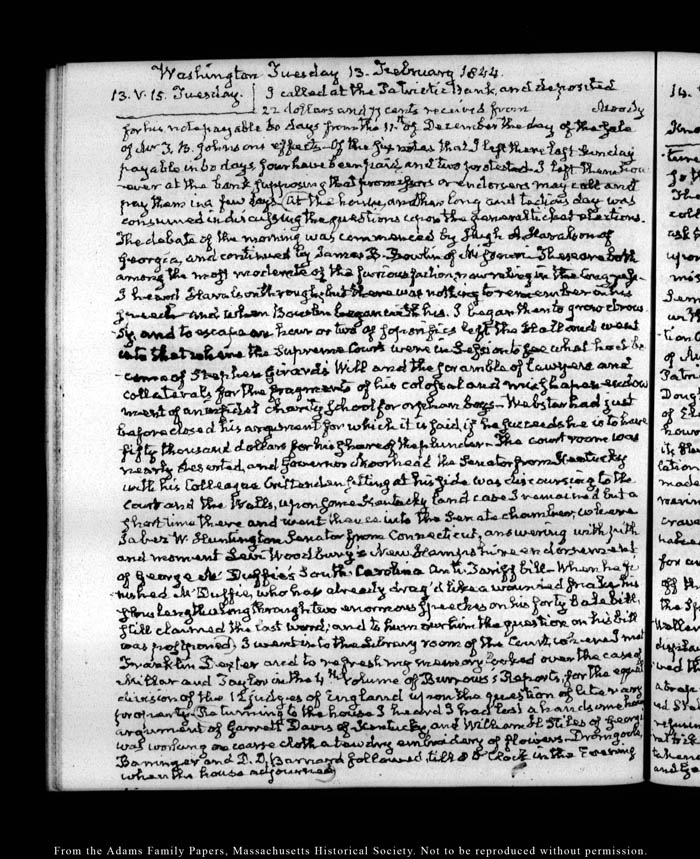 Washington Tuesday 13. February 1844.
13. V. 15. Tuesday. I called at the Patriotic Bank, and deposited
22 dollars and 77 cents received from Moody
for his note payable 60 days from the 11th of December the day of the Sale
of Mr J. B. Johnsons effects. Of the six notes that I left there last Sunday
payable in 60 days, four have been paid, and two protested. I left them
ever at the bank supposing that promissors or endorsers may call and
pay them in a few days. At the house, another long and tedious day was
consumed in discussing the questions upon the general ticket elections.
The debate of the morning was commenced by Hugh A Haralson of
Georgia, and continued by James B. Bowlin of Missouri. These are both
among the most moderate of the furious faction, now ruling in the Congress.
I heard Haralson through, but there was nothing to remember in his
speech and when Bowlin began with his, I began then to grow drow-
sy, and to escape an hour or two of soporifics left the Hall and went
into that where the Supreme Court were in Session to see what had be-
come of Stephen Girard's Will and the scramble of lawyers and
collaterals for the fragments of his colossal and misshapen endow
ment of an infidel charity school for orphan boys. Webster had just
before closed his argument for which it is said if he succeeds he is to have
fifty thousand dollars for his share of the plunder. The court room was
nearly deserted, and Governor Moorhead the Senator from Kentucky
with his Colleague Crittenden sitting at his side was discoursing to the
Court and the Walls, upon some Kentucky land case I remained but a
short time there and went thence into the Senate chamber, where
Jabez W. Huntington Senator from Connecticut, answering with pith
and moment Levi Woodbury's New Hampshire endorsement
of George McDuffie's South Carolina anti Tariff bill. When he fi-
nished McDuffie, who has already drag'd like a wounded snake his
slow length along through two enormous speeches on his forty bale bill,
still claimed the last word; and to humour him the question on his bill
was postponed. I went into the Library room of the Court, where I met
Franklin Dexter and to refresh my memory looked over the case of
Millar and Taylor in the 4th Volume of Burrow's Reports, for the equal
division of the 12 judges of England upon the question of literary
property. Returning to the house I heard I had lost a handsome
argument of Garrett Davis of Kentucky and William H Stiles of Georgia
was working on coarse cloth a tawdry embroidery of flowers. Dromgoole,
Barringer and D. D. Barnard followed till 8 O'Clock in the Evening
when the house adjourned
From the Adams Family Papers, Massachusetts Historical Society. Not to be reproduced without permission.